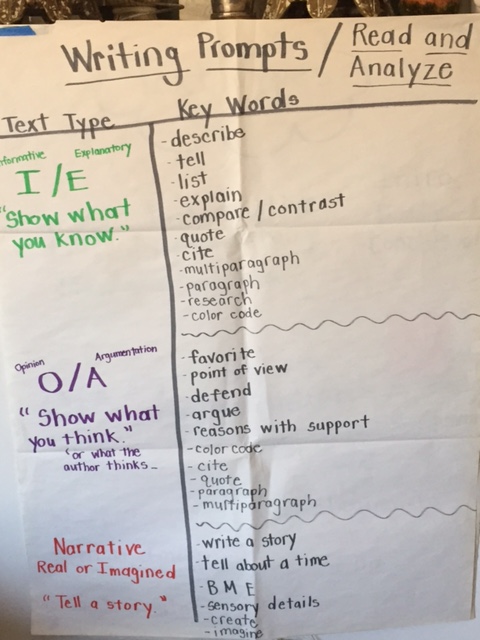 Writing Prompts / Read and
Analyze
Text Type
Key Words
Explanatory
I/E
"Show what
you know."
- describe
- tell
- list
- explain
- compare / contrast
- quote
- cite
- multiparagraph
- paragraph
- research
- color code
Opinion Argumentation
O/A
"Show what
you think."
*or what the
author thinks-
- favorite
- point of view
- defend
- argue
- reasons with support
- color code
- cite
- quote
- paragraph
- multiparagraph
Narrative
Real or Imagined
"Tell a story."
- write a story
- tell about a time
- B M E
- sensory details
- create
- imagine